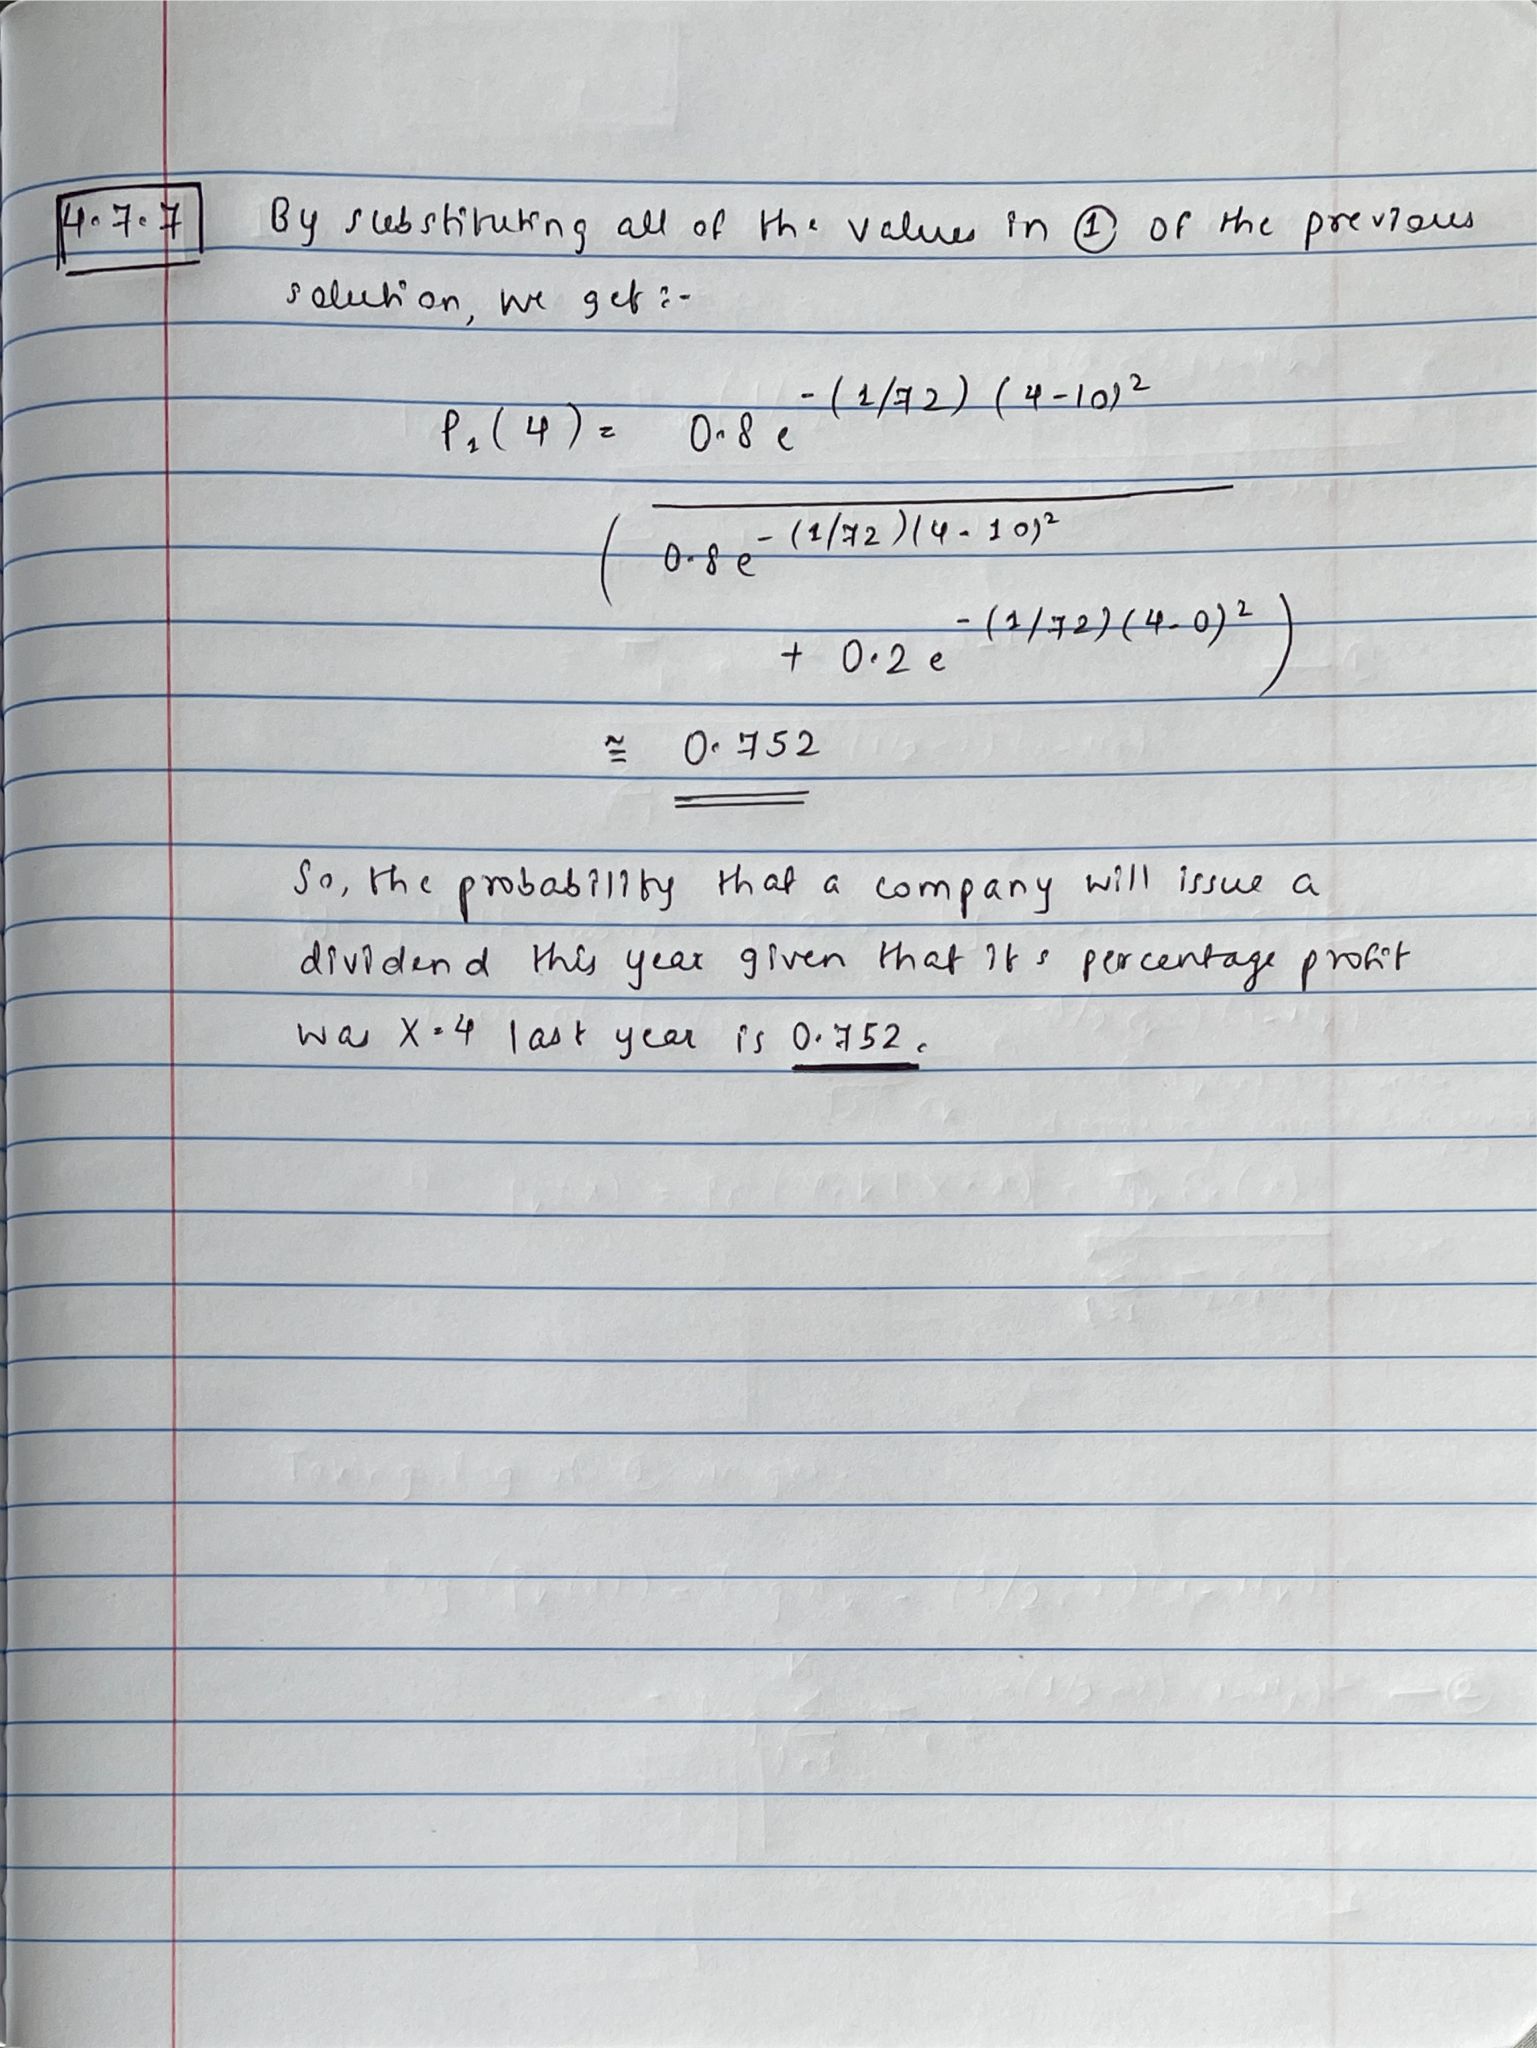 4.7.7 By substituting all of the values in ① of the previous
solution, we get :-
P₁(4) = 0.8 e^-(1/72) (4-10)²
( 0.8 e^-(1/72)(4-10)²
+ 0.2 e^-(1/72)(4-0)² )
≅ 0.752
So, the probability that a company will issue a
dividend this year given that its percentage profit
was X=4 last year is 0.752.